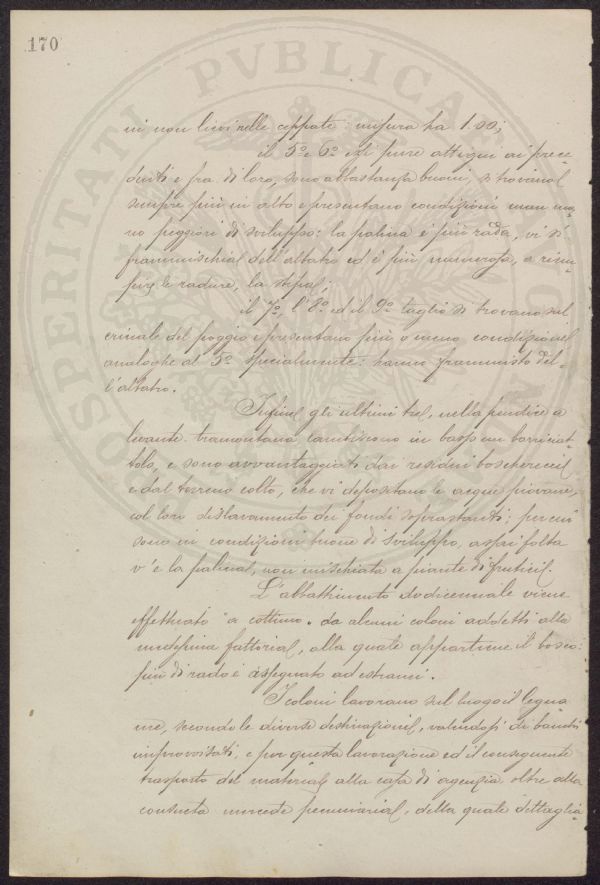 170
ni non lievi nelle ceppate: misura ha 1.00;
il 5º e 6º ett pure attigui ai prece-
denti e fra di loro, sono abbastanza buoni, si trovano
sempre più in alto e presentano condizioni man ma-
no peggiori di sviluppo: la palina è più rada, vi si
frammischia dell'albatro ed è più numerosa, a riem-
pire le radure, la stipa;
il 7º, l'8º ed il 9º taglio si trovano sul
crinale del poggio e presentano più o meno condizioni
analoghe al 5º specialmente: hanno frammisto del-
l'albatro.
Infine gli ultimi tre, nella pendice a
levante-tramontana lambiscono in basso un borriciat-
tolo, e sono avvantaggiati dai residui boscherecci
e dal terreno colto, che vi depositano le acque piovane,
col loro dislavamento dei fondi soprastanti; per cui
sono in condizioni buone di sviluppo, assai folta
v'è la palina, non mischiata a piante di frutici.
L'abbattimento dodicennale viene
effettuato "a cottimo" da alcuni coloni addetti alla
medesima fattoria, alla quale appartiene il bosco:
più di rado è assegnato ad estranei.
I coloni lavorano sul luogo il legna-
me, secondo le diverse destinazioni, valendosi di banchi
improvvisati, e per questa lavorazione ed il conseguente
trasporto del materiale alla casa di agenzia oltre alla
consueta mercede pecuniaria, della quale dettaglia-
PROSPERITATI PVBLICAE